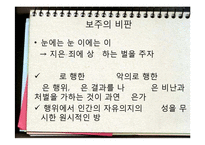 보주의 비판
• 눈에는 눈 이에는 이
→ 지은 죄에 상 하는 벌을 주자
✓ 로 행한 악의로 행한
은 행위, 은 결과를 나 은 비난과
처벌을 가하는 것이 과연 은가
✓ 행위에서 인간의 자유의지의 성을 무
시한 원시적인 방